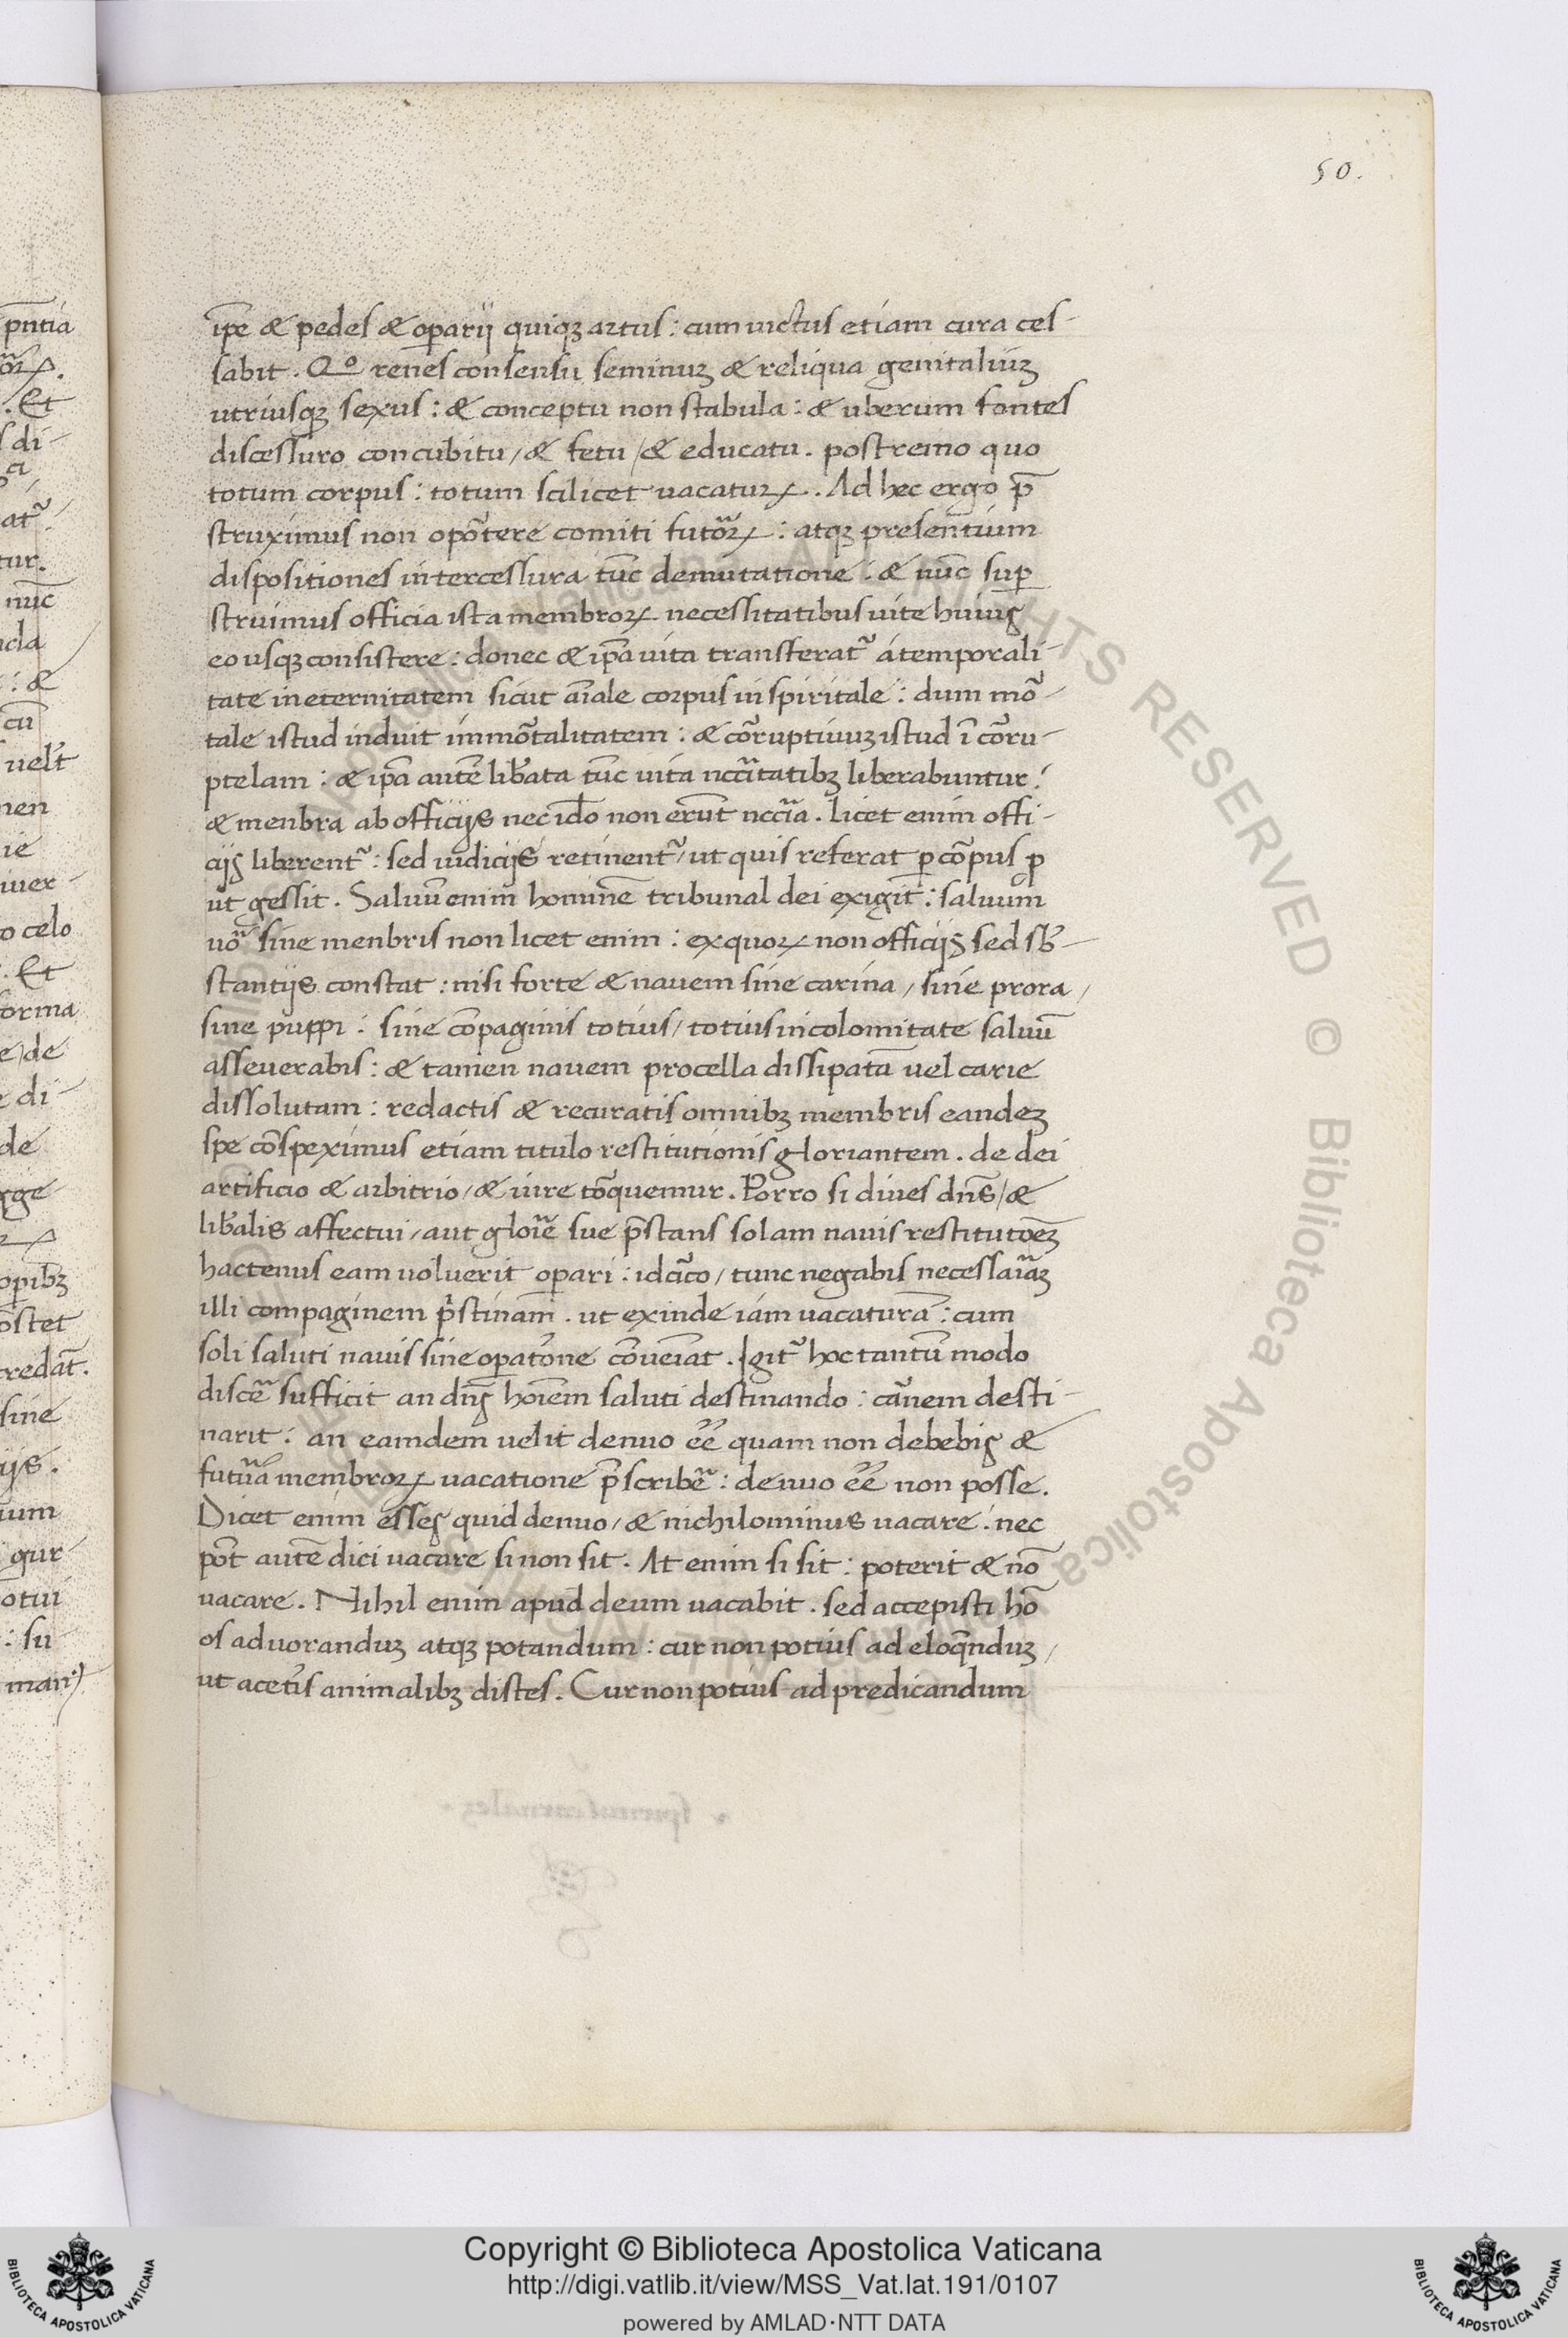 50.
ip̄e & pedes & oꝑarij quiqꝫ artus : cum uictus etiam cura ces-
sabit . Qº renes consensu seminuꝫ & reliqua genitaliuꝫ
utriusqꝫ sexus : & conceptu non stabula : & uberum fontes
discessuro concubitu / & fetu / & educatu . postremo quo
totum corpus : totum scilicet uacatuꝝ . Ad hec ergo p̄
struximus non opōtere comiti futōꝝ : atqꝫ presentium
dispositiones intercessura tūc demutatione : & nūc suꝑ
struimus officia ista membroꝝ necessitatibus uite huius
eo usqꝫ consistere : donec & ip̄a uita transferat᷑ átemporali-
tate in eternitatem sicut aīale corpus in spiritale : dum mō-
tale istud induit immōtalitatem : & cōruptiuuꝫ istud ī cōru-
ptelam : & ip̄a autē lib̄ata tūc uita nccītatibꝫ liberabuntur :
& menbra ab officijs nec id̄o non erūt ncc̄ia . licet enim offi-
cijs liberent᷑ : sed iudicijs retinent᷑ / ut quis referat ꝑ cōpus ꝓ
ut gessit . Saluū enim hominē tribunal dei exigit : saluum
uō sine menbris non licet enim : ex quoꝝ non officijs sed sb̄-
stantijs constat : nisi forte & nauem sine carina / sine prora /
sine puppi : sine cōpaginis totius / totius incolomitate saluū
asseuerabis : & tamen nauem procella dissipatā uel carie
dissolutam : redactis & recuratis omnibꝫ membris eandeꝫ
spe cōspeximus etiam titulo restitutionis gloriantem . de dei
artificio & arbitrio / & iure tōquemur . Porro si diues dn̄s / &
lib̄alis affectui / aut gloīe sue p̄stans solam nauis restitutōeꝫ
hactenus eam uoluerit oꝑari : idcīco / tunc negabis necessāiaꝫ
illi compaginem p̄stinam . ut exinde iam uacaturā : cum
soli saluti nauis sine oꝑatōne cōueīat . Igit᷑ hoc tantū modo
discē sufficit an dn̄s hoīem saluti destinando : cānem desti-
narit : an eamdem uelit denuo ēē quam non debebis &
futūa membroꝝ uacatione p̄scribē : denuo ēē non posse .
Dicet enim esses quid denuo / & nichilominus uacare : nec
pōt autē dici uacare si non sit . At enim si sit : poterit & nō
uacare . Nihil enim apud deum uacabit . sed accepisti hō
os ad uoranduꝫ atqꝫ potandum : cur non potius ad eloq̄nduꝫ /
ut acet̄is animalibꝫ distes . Cur non potius ad predicandum
pn̄tia
. Et
di-
at᷑
tur.
nūc
: &
cū
men
iuer-
o celo
. Et
forma
e / de
di-
de
opibꝫ
redāt.
sine
ijs .
ium
gur
otui
: su
© Biblioteca Apostolica Vaticana ALL RIGHTS RESERVED
Copyright © Biblioteca Apostolica Vaticana
http://digi.vatlib.it/view/MSS_Vat.lat.191/0107
powered by AMLAD·NTT DATA
BIBLIOTECA APOSTOLICA VATICANA
BIBLIOTECA APOSTOLICA VATICANA